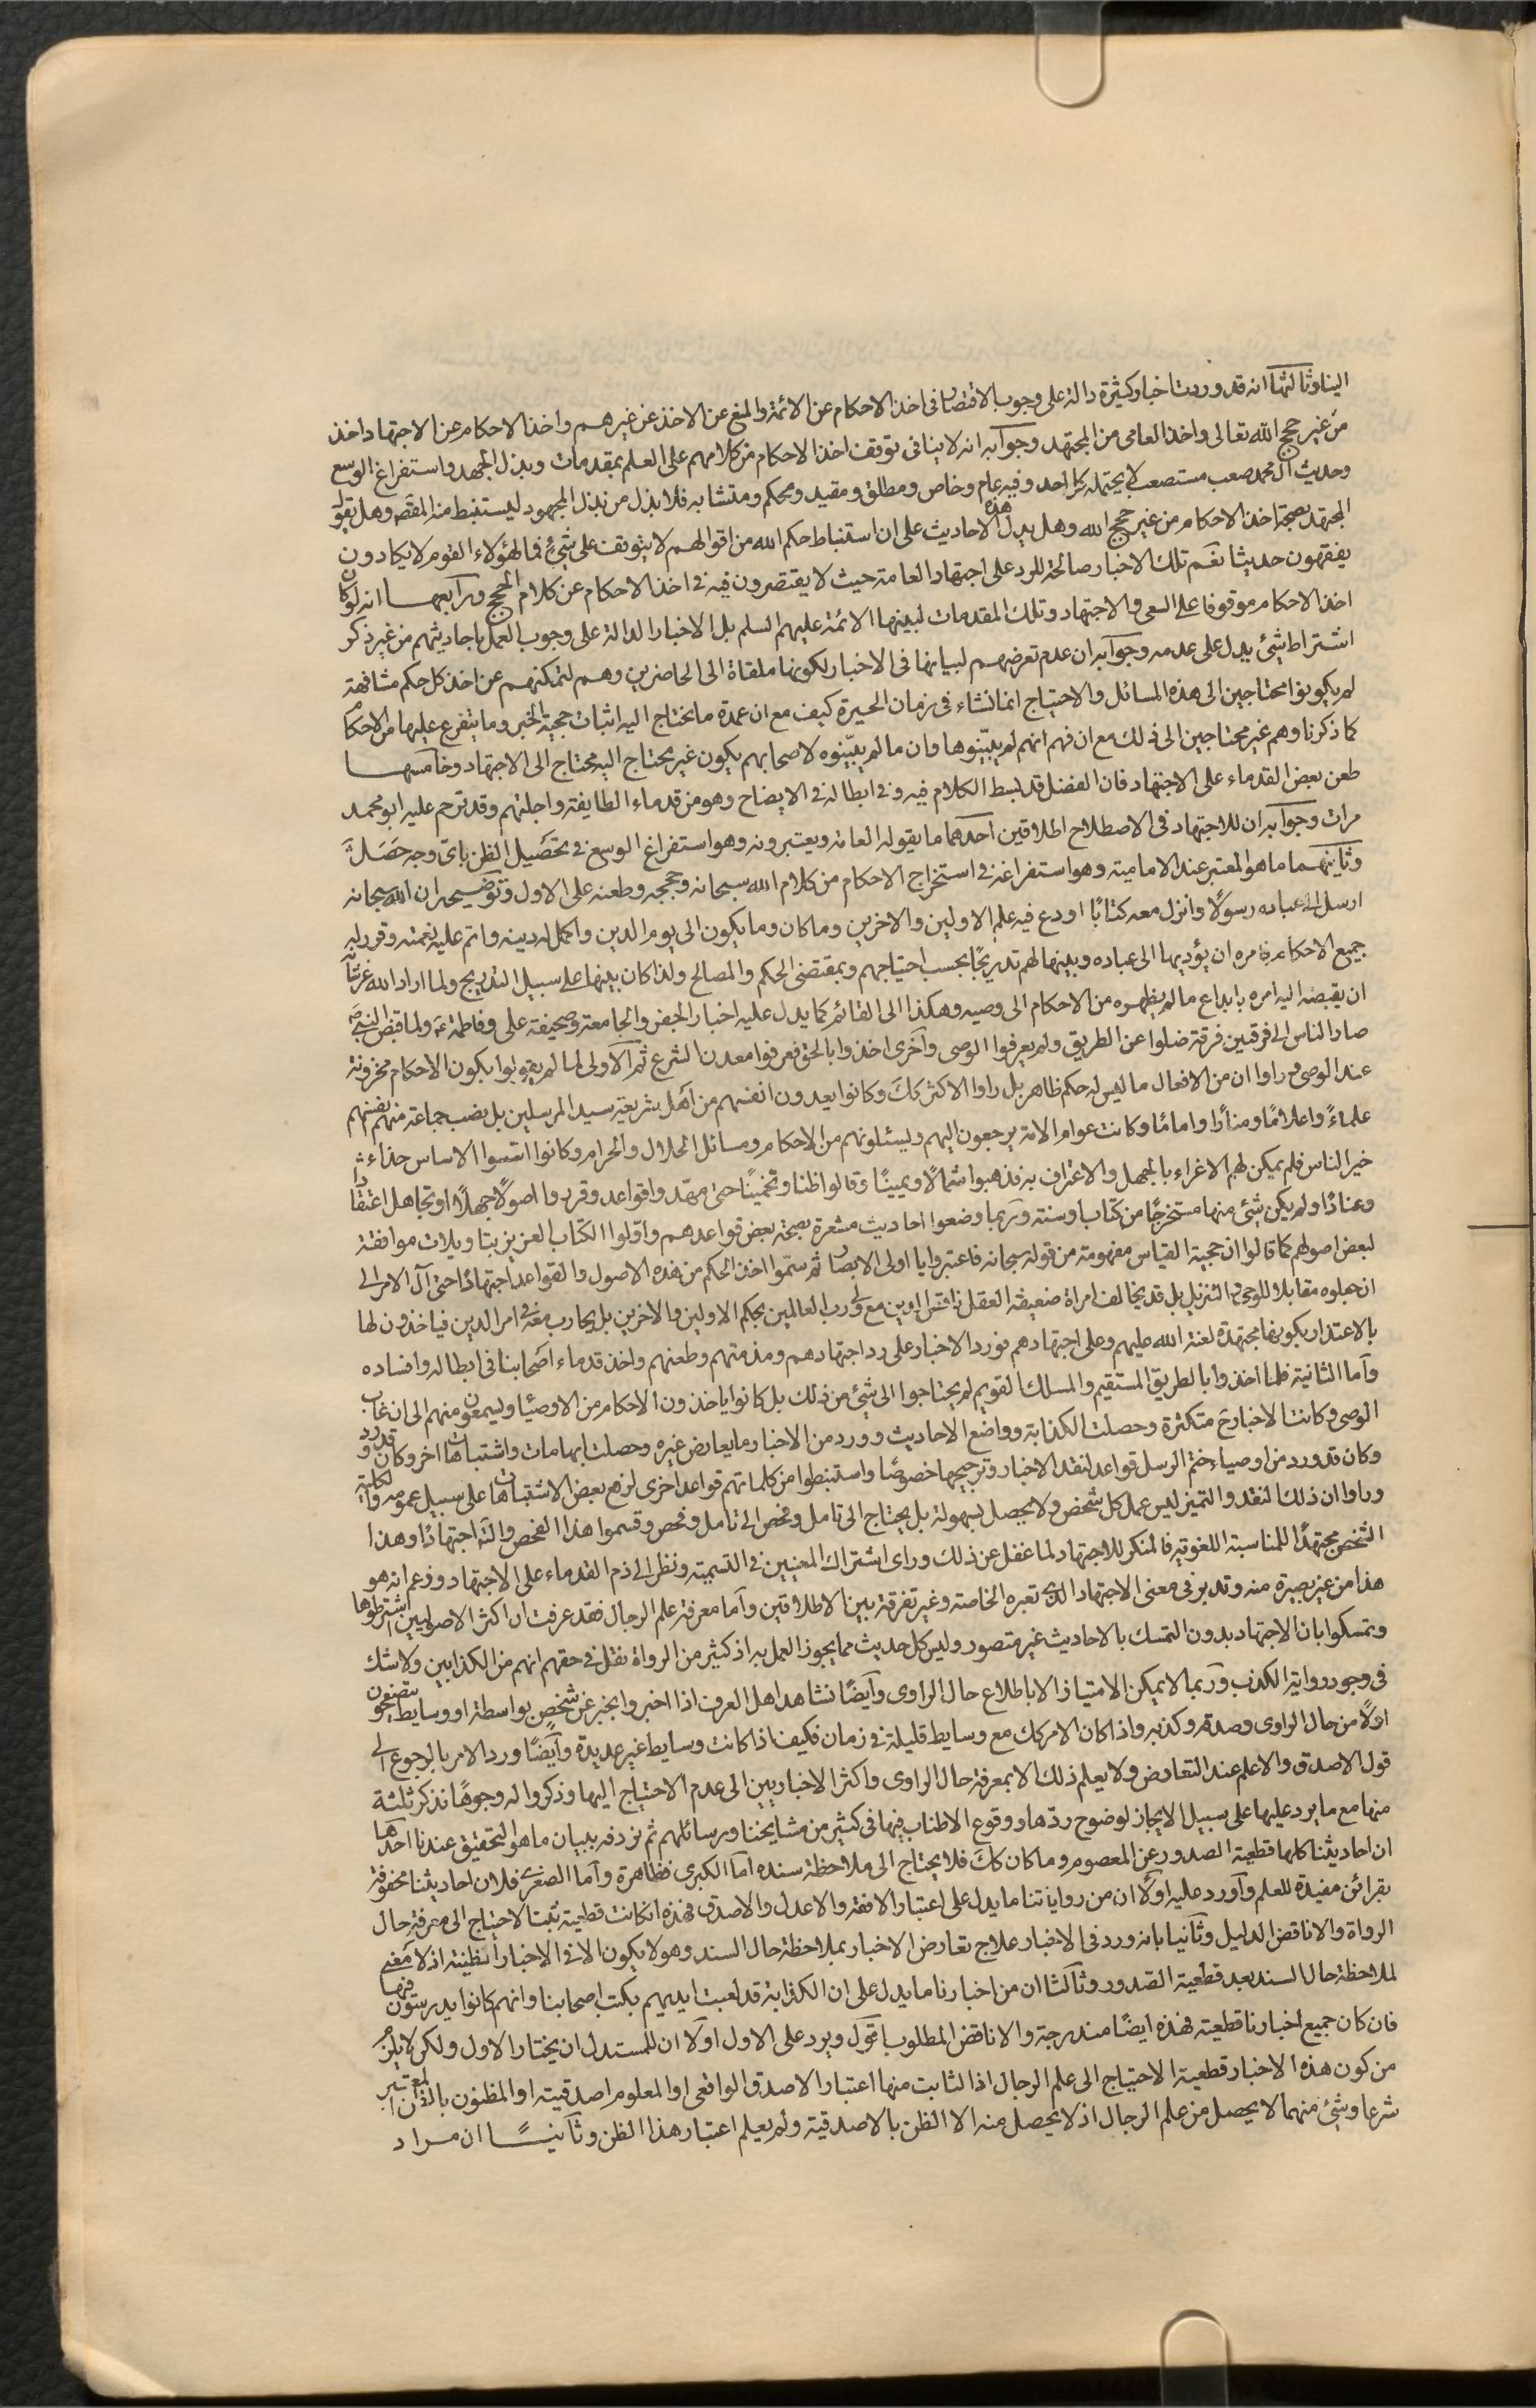 الينا وثالثها انه قد وردت اخبار كثيرة دالة على وجوب الاقتصار فى اخذ الاحكام عن الائمة والمنع عن الاخذ عن غيرهم واخذ الاحكام عن الاجتهاد اخذ
من غير حجج الله تعالى واخذ العامى من المجتهد وجوابه انه لا ينافى توقف اخذ الاحكام من كلامهم على العلم بمقدمات وبذل الجهد واستفراغ الوسع
وحديث آل محمد صعب مستصعب لا يحتمله كل احد وفيه عام وخاص ومطلق ومقيد ومحكم ومتشابه فلا بد من بذل المجهود ليستنبط منه المقصد وهل يقول
المجتهد بصحة اخذ الاحكام من غير حجج الله وهل يدل هذه الاحاديث على ان استنباط حكم الله من اقوالهم لا يتوقف على شئ فما لهؤلاء القوم لا يكادون
يفقهون حديثا نعم تلك الاخبار صالحة للرد على اجتهاد العامة حيث لا يقتصرون فيه فى اخذ الاحكام عن كلام الحجج ورابعها انه لو كان
اخذ الاحكام موقوفا على السعى والاجتهاد وتلك المقدمات لبينها الائمة عليهم السلم بل الاخبار الدالة على وجوب العمل باحاديثهم من غير ذكر
اشتراط شئ يدل على عدمه وجوابه ان عدم تعرضهم لبيانها فى الاخبار لكونها ملقاة الى الحاضرين وهم لتمكنهم عن اخذ كل حكم مشافهة
لم يكونوا محتاجين الى هذه المسائل والاحتياج انما نشاء فى زمان الحيرة كيف مع ان عمدة ما يحتاج اليه اثبات حجية الخبر وما يتفرع عليها من الاحكام
كما ذكرنا وهم غير محتاجين الى ذلك مع ان فهم انهم لم يبينوها وان ما لم يبينوه لاصحابهم يكون غير محتاج اليه محتاج الى الاجتهاد وخامسها
طعن بعض القدماء على الاجتهاد فان الفضل قد بسط الكلام فيه وفى ابطاله فى الايضاح وهو من قدماء الطايفة واجلتهم وقد ترحم عليه ابو محمد
مرات وجوابه ان للاجتهاد فى الاصطلاح اطلاقين احدهما ما يقوله العامة ويعتبرونه وهو استفراغ الوسع فى تحصيل الظن باى وجه حصل
وثانيهما ما هو المعتبر عند الامامية وهو استفراغه فى استخراج الاحكام من كلام الله سبحانه وحججه وطعنه على الاول وتوضيحه ان الله سبحانه
ارسل الى عباده رسولا وانزل معه كتابا اودع فيه علم الاولين والاخرين وما كان وما يكون الى يوم الدين واكمل له دينه واتم عليه نعمته وقرر له
جميع الاحكام فامره ان يؤديها الى عباده ويبينها لهم تدريجا بحسب احتياجهم وبمقتضى الحكم والمصالح ولذا كان يبينها على سبيل التدريج ولما اراد الله عز شأنه
ان يقبضه اليه امره بايداع ما لم يظهره من الاحكام الى وصيه وهكذا الى القائم كما يدل عليه اخبار الجفر والجامعة وصحيفة على وفاطمة ع ولما قبض النبى ص
صار الناس الى فرقتين فرقة ضلوا عن الطريق ولم يعرفوا الوصى واخرى اخذوا بالحق فعرفوا معدن الشرع ثم الاولى لما لم يقولوا بكون الاحكام مخزونة
عند الوصى وراوا ان من الافعال ما ليس له حكم ظاهر بل راوا الاكثر كك وكانوا يعدون انفسهم من اهل شريعة سيد المرسلين بل نصب جماعة منهم نفسهم
علماء واعلاما ومنارا واماما وكانت عوام الامة يرجعون اليهم ويسئلونهم من الاحكام ومسائل الحلال والحرام وكانوا اسسوا الاساس حذاء
خير الناس فلم يمكن لهم الاغراء بالجهل والاعتراف به فذهبوا شمالا ويمينا وقالوا ظنا وتخمينا حتى مهدوا قواعد وقرروا اصولا جهلا او تجاهلا اعتقادا
وعنادا ولم يكن شئ منها مستخرجا من كتاب او سنة وربما وضعوا احاديث مشعرة بصحة بعض قواعدهم واولوا الكتاب العزيز بتاويلات موافقة
لبعض اصولهم كما قالوا ان حجية القياس مفهومة من قوله سبحانه فاعتبروا يا اولى الابصار ثم سموا اخذ الحكم من هذه الاصول والقواعد اجتهادا حتى آل الامر الى
ان جعلوه مقابلا للوحى والتنزيل بل قد يخالف امراة ضعيفة العقل مع ولى رب العالمين بحكم الاولين والاخرين بل يحارب معه فى امر الدين فياخذون لها
بالاعتذار بكونها مجتهدة لعنة الله عليهم وعلى اجتهادهم فورد الاخبار على رد اجتهادهم ومذمتهم وطعنهم واخذ قدماء اصحابنا فى ابطاله وافساده
واما الثانية فلما اخذوا بالطريق المستقيم والمسلك القويم لم يحتاجوا الى شئ من ذلك بل كانوا ياخذون الاحكام من الاوصياء ويسمعون منهم الى ان غاب
الوصى وكانت الاخبار ح متكثرة وحصلت الكذابة وواضع الاحاديث وورد من الاخبار ما يعارض غيره وحصلت ابهامات واشتباهات اخر وكان قد ورد
وكان قد ورد من اوصياء ختم الرسل قواعد لنقد الاخبار وترجيحها خصوصا واستنبطوا من كلماتهم قواعد اخرى لرفع بعض الاشتباهات على سبيل عموم او كلية
وراوا ان ذلك النقد والتميز ليس عمل كل شخص ولا يحصل بسهولة بل يحتاج الى تامل وفحص الى تامل وفحص وقسموا هذا الفحص والتامل اجتهادا وهذا
الشخص مجتهدا للمناسبة اللغوية فالمنكر للاجتهاد لما غفل عن ذلك وراى اشتراك المعنيين فى التسمية ونظر الى ذم القدماء على الاجتهاد وزعم انه هو
هذا من غير بصيرة منه وتدبر فى معنى الاجتهاد الذى تعبره الخاصة وغير تفرقة بين الاطلاقين واما معرفة علم الرجال فقد عرفت ان اكثر الاصوليين اشترطوها
وتمسكوا بان الاجتهاد بدون التمسك بالاحاديث غير متصور وليس كل حديث مما يجوز العمل به اذ كثير من الرواة نقل فى حقهم انهم من الكذابين ولا شك
فى وجود رواية الكذب وربما لا يمكن الامتياز الا باطلاع حال الراوى وايضا نشاهد اهل العرف اذا اخبروا بخبر عن شخص بواسطة او وسايط يتفحصون
اولا من حال الراوى وصدقه وكذبه واذا كان الامر كك مع وسايط قليلة فى زمان فكيف اذا كانت وسايط غير عديدة وايضا ورد الامر بالرجوع الى
قول الاصدق والاعلم عند التعارض ولا يعلم ذلك الا بمعرفة حال الراوى واكثر الاخباريين الى عدم الاحتياج اليها وذكروا له وجوها نذكر ثلثة
منها مع ما يرد عليها على سبيل الايجاز لوضوح ردها ووقوع الاطناب فيها فى كثير من مشايخنا ورسائلهم ثم نردفه ببيان ما هو التحقيق عندنا احدها
ان احاديثنا كلها قطعية الصدور عن المعصوم وما كان كك فلا يحتاج الى ملاحظة سنده اما الكبرى فظاهرة واما الصغرى فلان احاديثنا محفوفة
بقرائن مفيدة للعلم واورد عليه اولا ان من رواياتنا ما يدل على اعتبار الافقه والاعدل والاصدق فهذه ان كانت قطعية ثبت الاحتياج الى معرفة حال
الرواة والا ناقض الدليل وثانيا بانه ورد فى الاخبار علاج تعارض الاخبار بملاحظة حال السند وهو لا يكون الا فى الاخبار الظنية اذ لا معنى
لملاحظة حال السند بعد قطعية الصدور وثالثا ان من اخبارنا ما يدل على ان الكذابة قد لعبت ايديهم بكتب اصحابنا وانهم كانوا يدسون فيها
فان كان جميع اخبارنا قطعية فهذه ايضا مندرجة والا ناقض المطلوب اقول ويرد على الاول اولا ان للمستدل ان يختار الاول ولكن لا يلزم
من كون هذه الاخبار قطعية الاحتياج الى علم الرجال اذ الثابت منها اعتبار الاصدق الواقعى او المعلوم اصدقيته او المظنون بالظن المعتبر
شرعا وشئ منهما لا يحصل من علم الرجال اذ لا يحصل منه الا الظن بالاصدقية ولم يعلم اعتبار هذا الظن وثانيا ان مراد